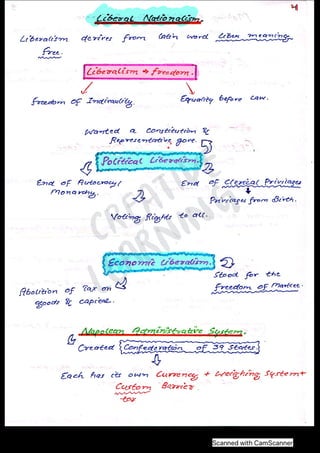 4
Liberal Nationalism.
Liberalism derives from latin word Liber meaning
free.
Liberalism → freedom.
freedom of Indivaulity. Equality before Law.
Wanted a constitution &
Representative gove.
Political Liberalism.
End of Autocracy/
Monarchy.
End of Clerical Privilages
Privilages from Birth.
Voting Rights to all.
CREATIVE
LEARNING
Economic Liberalism.
Abolition of tax on
goods & capital.
Stood for the
freedom of market.
Napolean Administrative System.
Created Confederation of 39 states.
Each has its own Currency + Weighing System+
Custom Barrier
tax
Scanned with CamScanner